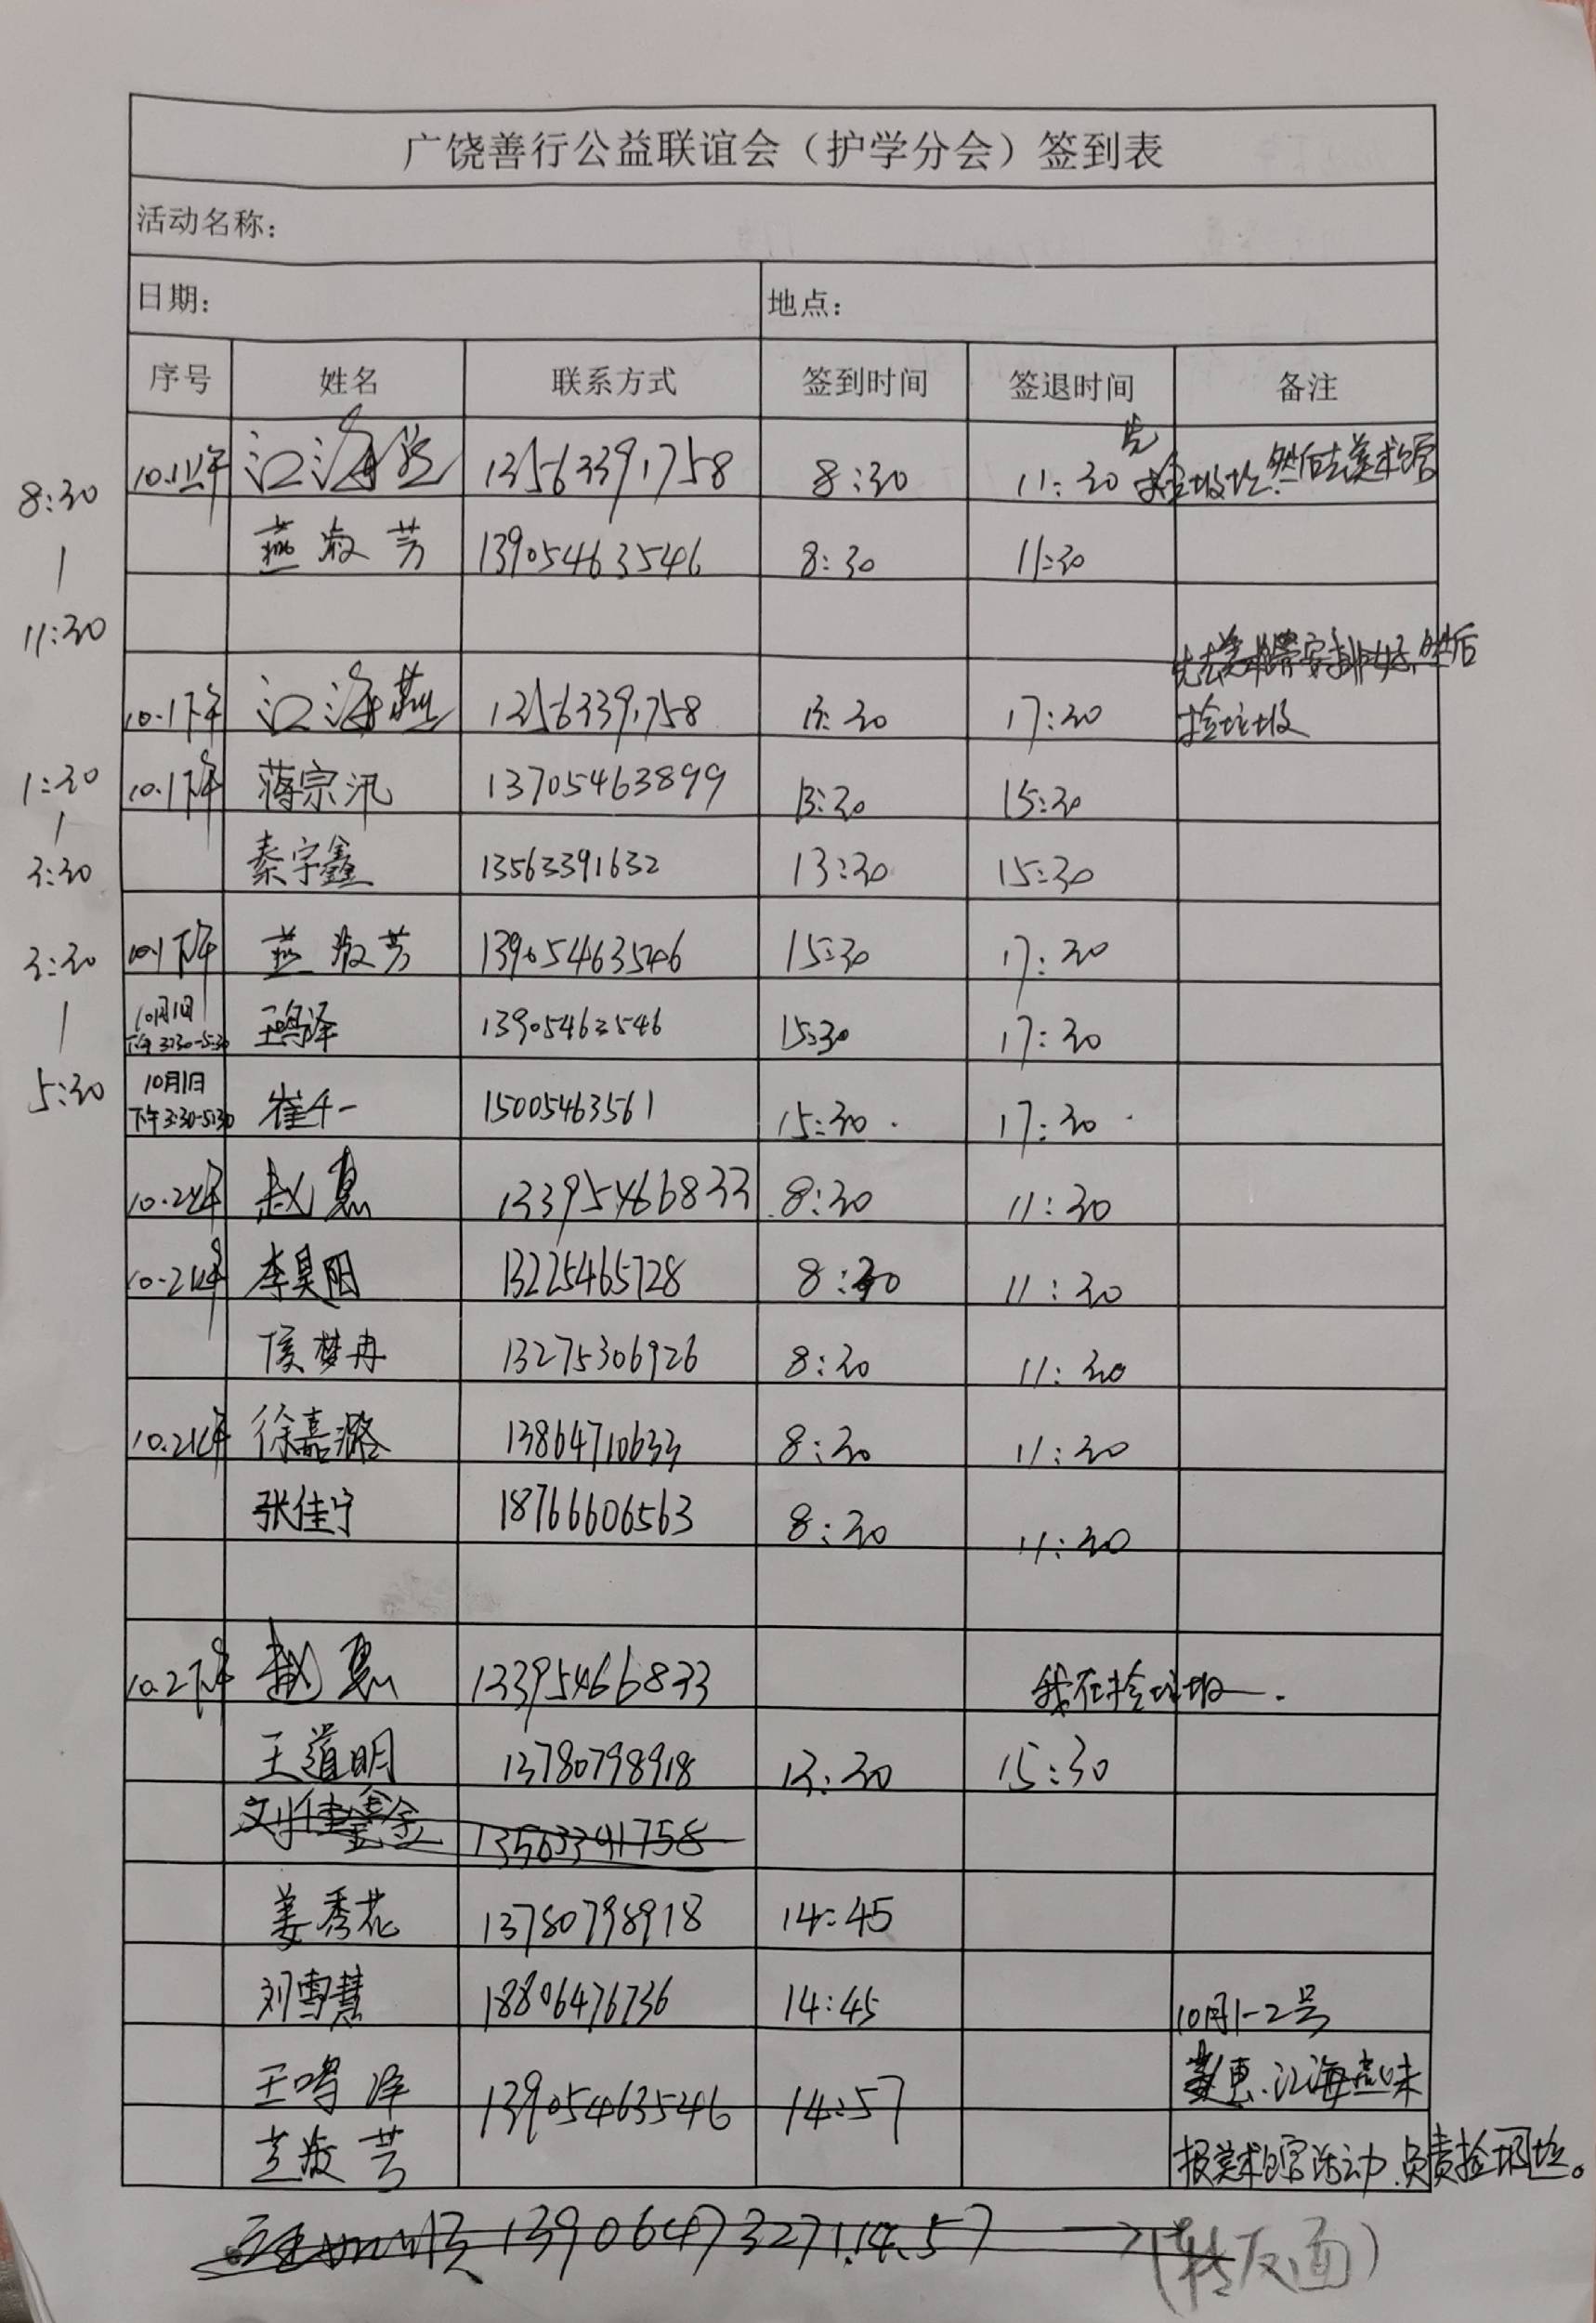 广饶善行公益联谊会（护学分会）签到表
活动名称：
日期： 地点：
序号 姓名 联系方式 签到时间 签退时间 备注
10.1上午 江海燕 13563391758 8:30 11:30 先捡垃圾,然后去美术馆
燕淑芳 13905463546 8:30 11:30
8:30
|
11:30
先去美术馆安排好,然后
10.1下午 江海燕 13563391758 13:30 17:30 捡垃圾
10.1下午 蒋宗汛 13705463899 13:30 15:30
1:30
|
3:30
秦宇鑫 13563391632 13:30 15:30
10.1下午 燕淑芳 13905463546 15:30 17:30
3:30
|
5:30
10月1日
下午3:30-5:30 王鸣泽 13905463546 15:30 17:30
10月1日
下午3:30-5:30 崔千一 15005463561 15:30 17:30
10.2上午 赵惠 13395466833 8:30 11:30
10.2上午 李昊阳 13225465728 8:30 11:30
侯梦冉 13275306926 8:30 11:30
10.2上午 徐嘉潞 13864710633 8:30 11:30
张佳宁 18766606563 8:30 11:30
10.2下午 赵惠 13395466833 我在捡垃圾.
王道明 13780798918 13:30 15:30
刘佳鑫 13563391758
姜秀花 13780798918 14:45
刘雪慧 18806476736 14:45
10月1-2号
王鸣泽 13905463546 14:57
赵惠.江海燕
淑芳
报美术馆活动,负责捡垃圾。
13906473271 14.57 (转反面)